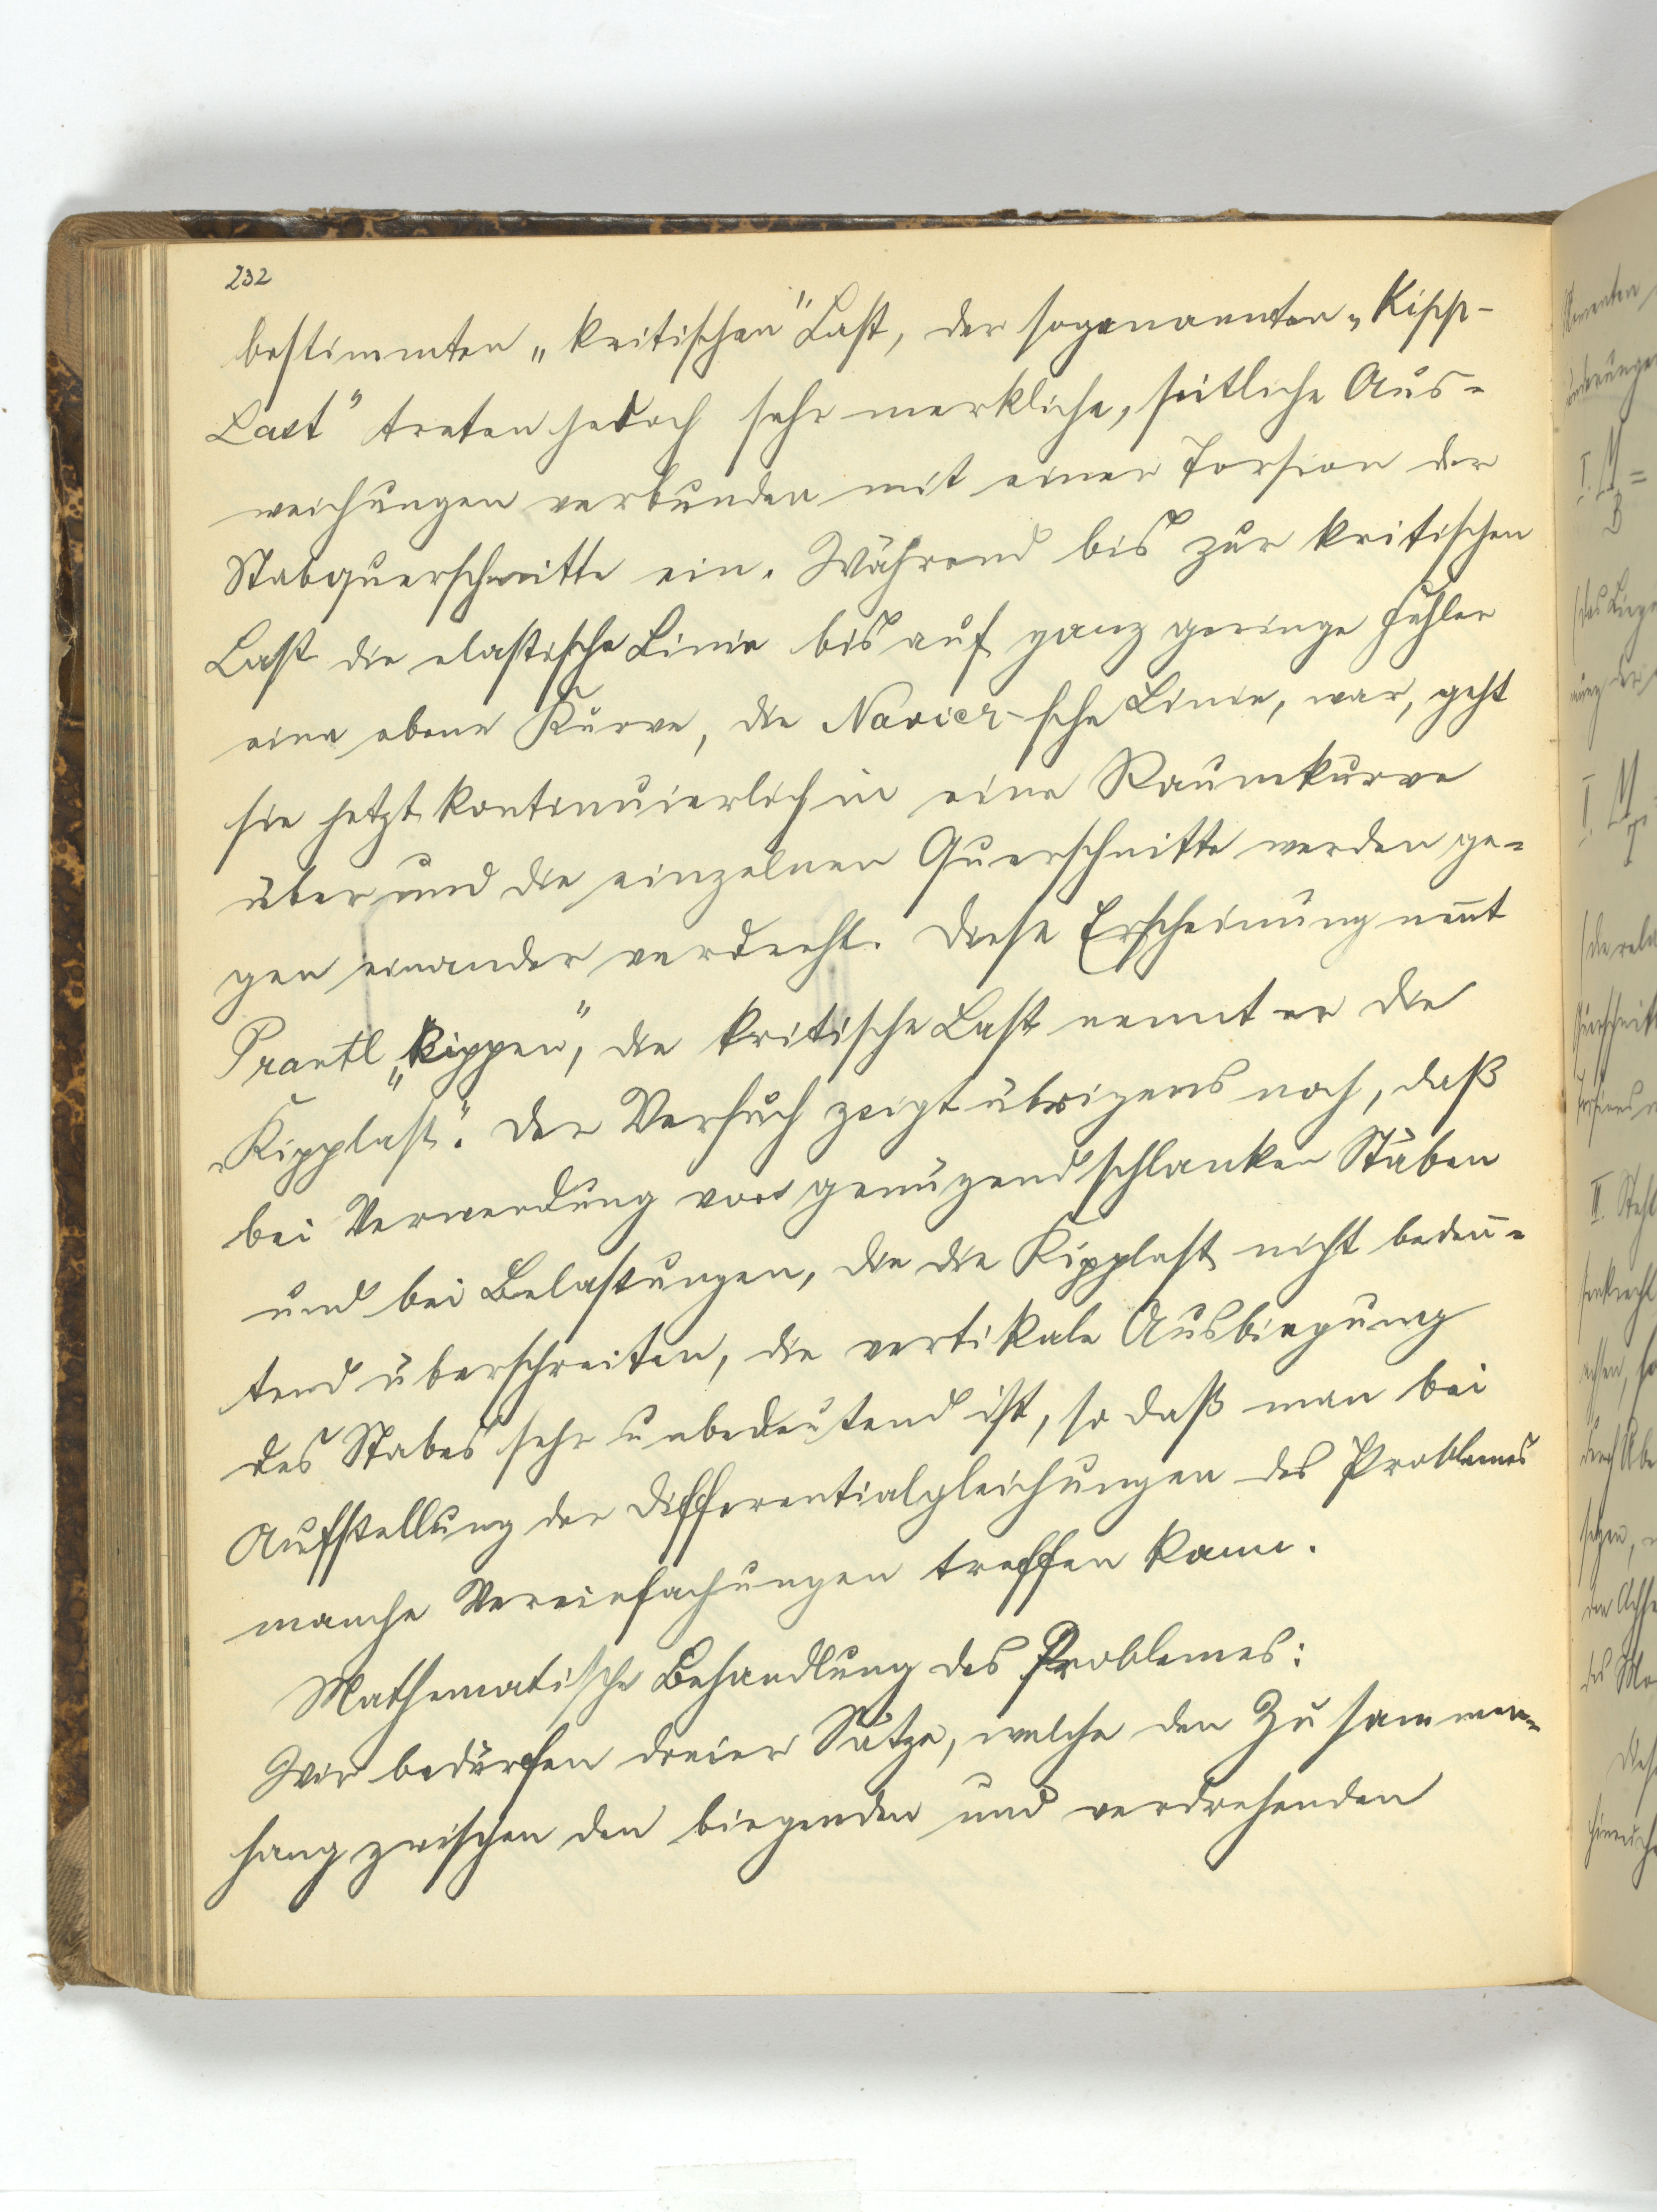 232
bestimmten „kritischen" Last, der sogenannten „Kipp-
Last" treten jedoch sehr merkliche, seitliche Aus-
weichungen verbunden mit einer Torsion der
Stabquerschnitte ein. Während bis zur kritischen
Last die elastische Linie bis auf ganz geringe Fehler
eine ebene Kurve, die Navier-sche Linie, war, geht
sie jetzt kontinuierlich in eine Raumkurve
über und die einzelnen Querschnitte werden ge-
gen einander verdreht. Diese Erscheinung nennt
Prantl „Kippen", die kritische Last nennt er die
„Kipplast". Der Versuch zeigt übrigens noch, daß
bei Verwendung von genügend schlanken Stäben
und bei Belastungen, die die Kipplast nicht bedeu-
tend überschreiten, die vertikale Ausbiegung
des Stabes sehr unbedeutend ist, so daß man bei
Aufstellung der Differentialgleichungen des Problemes
manche Vereinfachungen treffen kann.
Mathematische Behandlung des Problemes:
Wir bedürfen dreier Sätze, welche den Zusammen-
hang zwischen den biegenden und verdrehenden